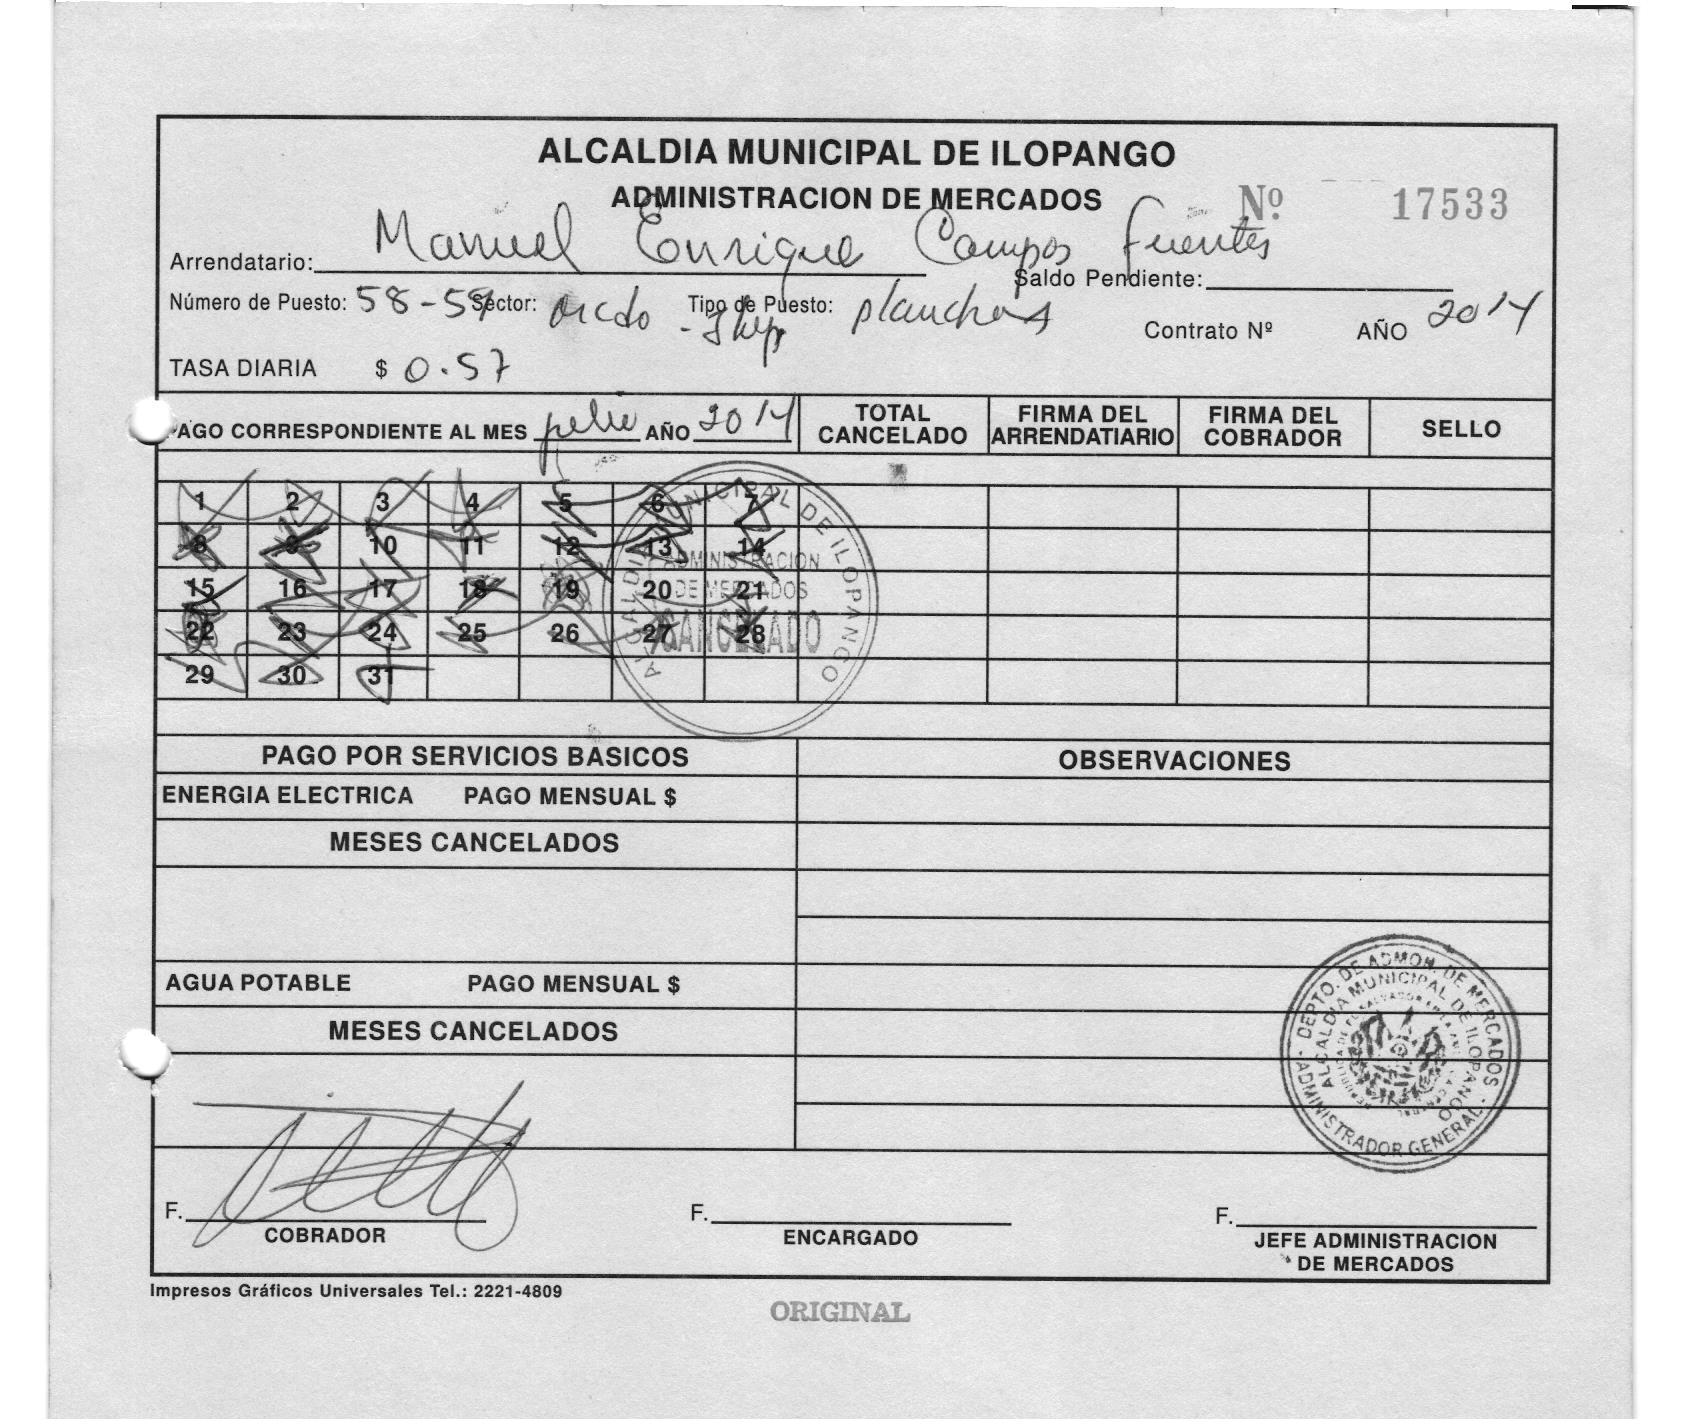 ALCALDIA MUNICIPAL DE ILOPANGO
ADMINISTRACION DE MERCADOS
Nº 17533
Arrendatario: Manuel Enrique Campos Fuentes
Saldo Pendiente:
Número de Puesto: 58-59 Sector: Tipo de Puesto: planchas
Contrato Nº AÑO 2014
TASA DIARIA $ 0.57
PAGO CORRESPONDIENTE AL MES julio AÑO 2014 TOTAL CANCELADO FIRMA DEL ARRENDATIARIO FIRMA DEL COBRADOR SELLO
1 2 3 4 5 6 7
8 9 10 11 12 13 14
15 16 17 18 19 20 21
22 23 24 25 26 27 28
29 30 31
ALCALDIA MUNICIPAL DE ILOPANGO
ADMINISTRACION
DE MERCADOS
CANCELADO
PAGO POR SERVICIOS BASICOS OBSERVACIONES
ENERGIA ELECTRICA PAGO MENSUAL $
MESES CANCELADOS
AGUA POTABLE PAGO MENSUAL $
MESES CANCELADOS
DEPTO. DE ADMON. DE MERCADOS
ALCALDIA MUNICIPAL DE ILOPANGO
ADMINISTRADOR GENERAL
F. F. F.
COBRADOR ENCARGADO JEFE ADMINISTRACION
DE MERCADOS
Impresos Gráficos Universales Tel.: 2221-4809
ORIGINAL